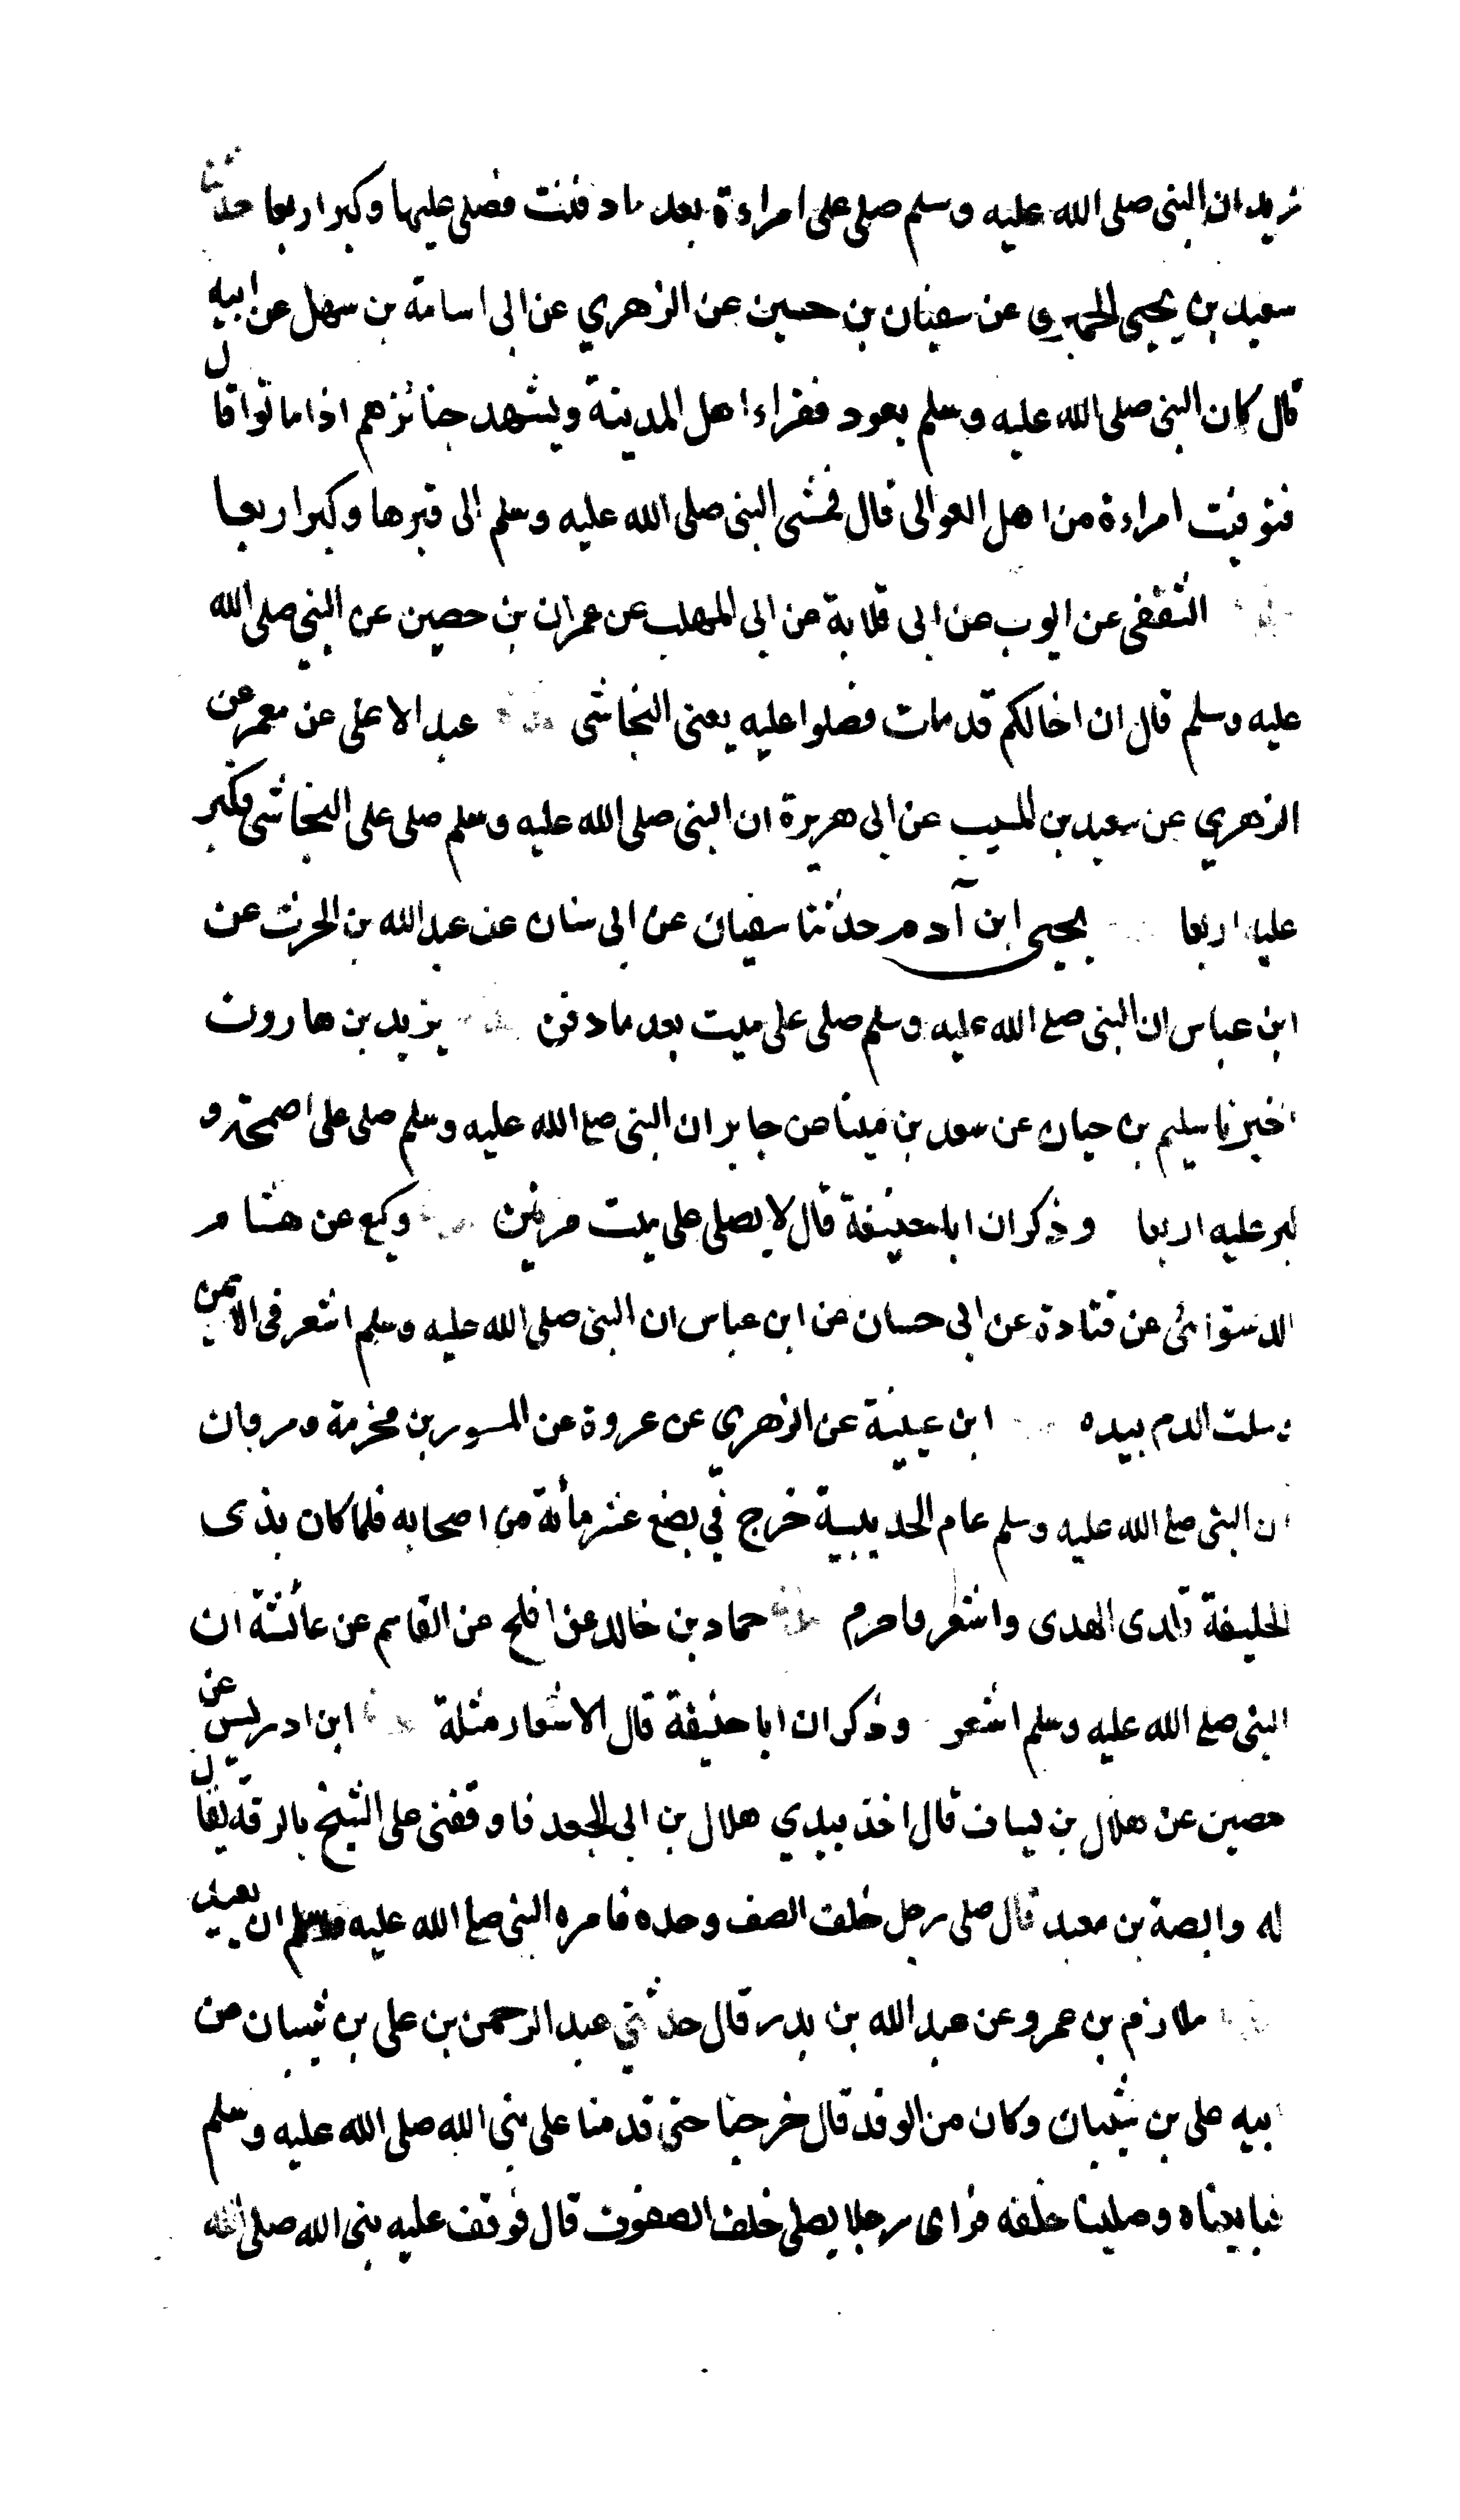 يزيد ان النبى صلى الله عليه وسلم صلى على امراءة بعد ما دفنت فصلى عليها وكبر اربعا حدثنا
سعيد بن يحيى الحميرى عن سفيان بن حسين عن الزهري عن ابى اسامة بن سهل عن ابيه
قال كان النبى صلى الله عليه وسلم يعود فقراء اهل المدينة ويشهد جنائزهم اذا ماتوا قال
فتوفيت امراءة من اهل العوالى قال فمشى النبى صلى الله عليه وسلم الى قبرها وكبر اربعا
الثقفى عن ايوب عن ابى قلابة عن ابى المهلب عن عمران بن حصين عن النبى صلى الله
عليه وسلم قال ان اخالكم قد مات فصلوا عليه يعنى النجاشى عبد الاعلى عن معمر عن
الزهري عن سعيد بن المسيب عن ابى هريرة ان النبى صلى الله عليه وسلم صلى على النجاشى فكبر
عليه اربعا يحيى ابن آدم حدثنا سفيان عن ابى سنان عن عبد الله بن الحرث عن
ابن عباس ان النبى صلع الله عليه وسلم صلى على ميت بعد ما دفن يزيد بن هارون
اخبرنا سليم بن حيان عن سعد بن مينا عن جابر ان النبى صلع الله عليه وسلم صلى على اصمحة و
كبر عليه اربعا وذكر ان ابا حنيفة قال لا يصلى على ميت مرتين وكيع عن هشام
الدستوائى عن قتادة عن ابى حسان عن ابن عباس ان النبى صلى الله عليه وسلم اشعر فى الايمن
وسلت الدم بيده ابن عيينة عن الزهري عن عروة عن المسور بن مخرمة ومروان
ان النبى صلع الله عليه وسلم عام الحديبية خرج في بضع عشر مائة من اصحابه فلما كان بذى
الحليفة قلدى الهدى واشعر واحرم حدثنا حماد بن خالد عن افلح عن القاسم عن عائشة ان
النبى صلع الله عليه وسلم اشعر وذكر ان ابا حنيفة قال الاشعار مثلة ابن ادريس عن
حصين عن هلال بن يساف قال اخذ بيدي هلال بن ابى الجعد فاوقفنى على الشيخ بالرقة يقال
له وابصة بن معبد قال صلى رجل خلف الصف وحده فامره النبى صلع الله عليه وسلم ان يعيد
ملازم بن عمرو عن عبد الله بن بدر قال حدثني عبد الرحمن بن على بن شيبان عن
ابيه على بن شيبان وكان من الوفد قال خرجنا حتى قدمنا على نبى الله صلى الله عليه وسلم
فبايعناه وصلينا خلفه فراى رجلا يصلى خلف الصفوف قال فوقف عليه نبى الله صلى الله